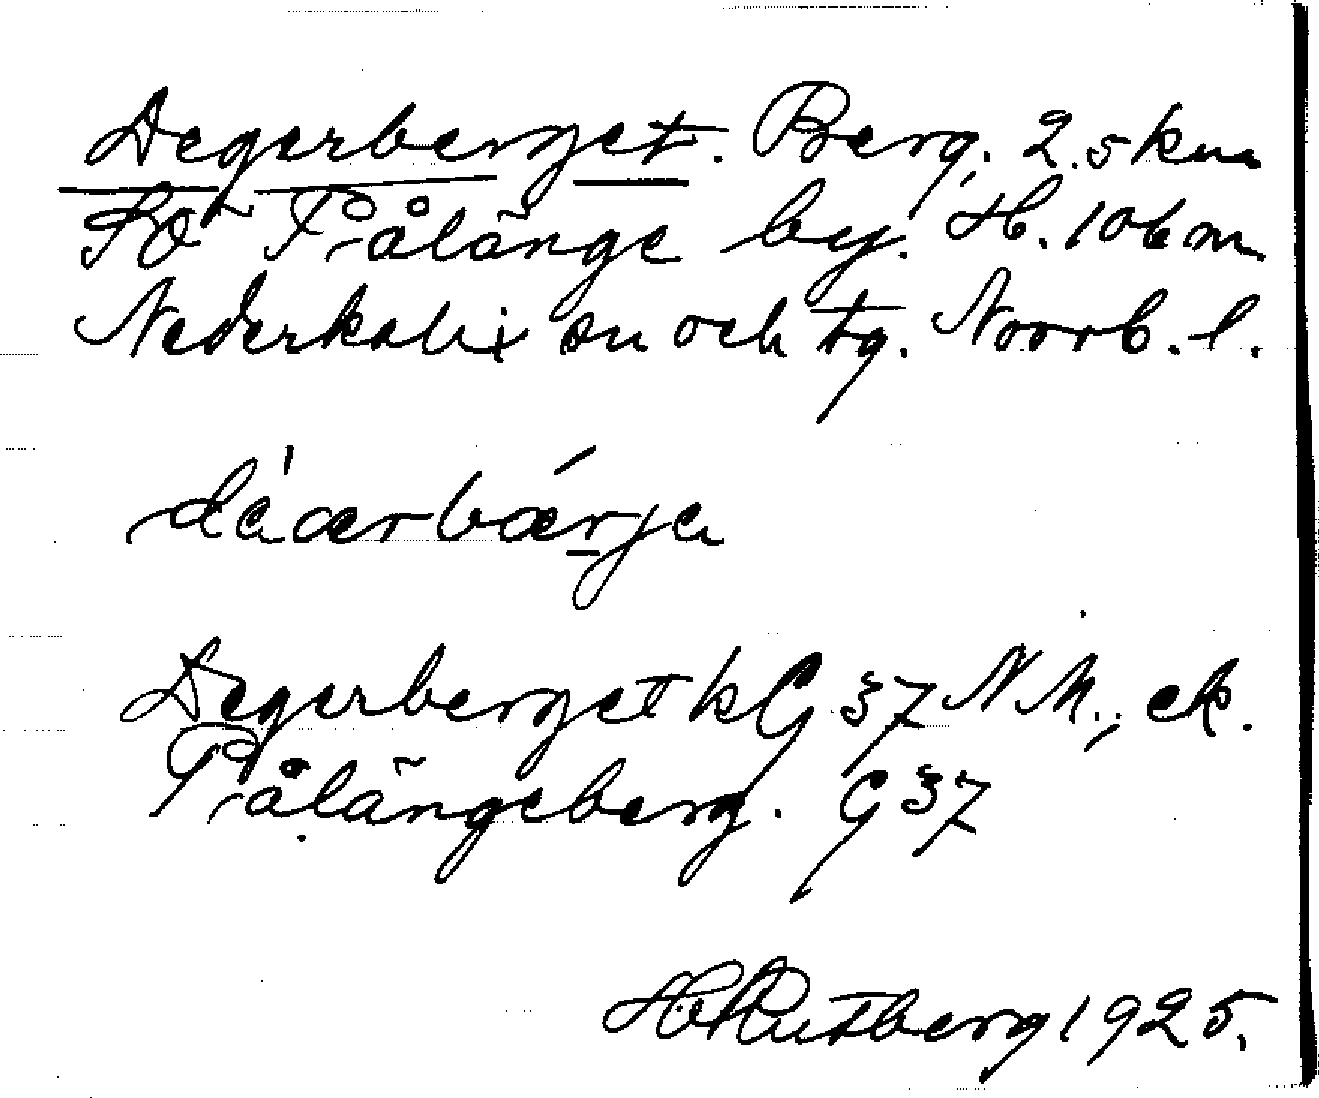 Degerberget. Berg, 2.5 km
SO Pålänge by. H. 106 m
Nederkalix sn och tg. Norrb. l.
Degerberget kG 37 N.M., ek.
Pålängeberg. G 37
H Rutberg 1925.